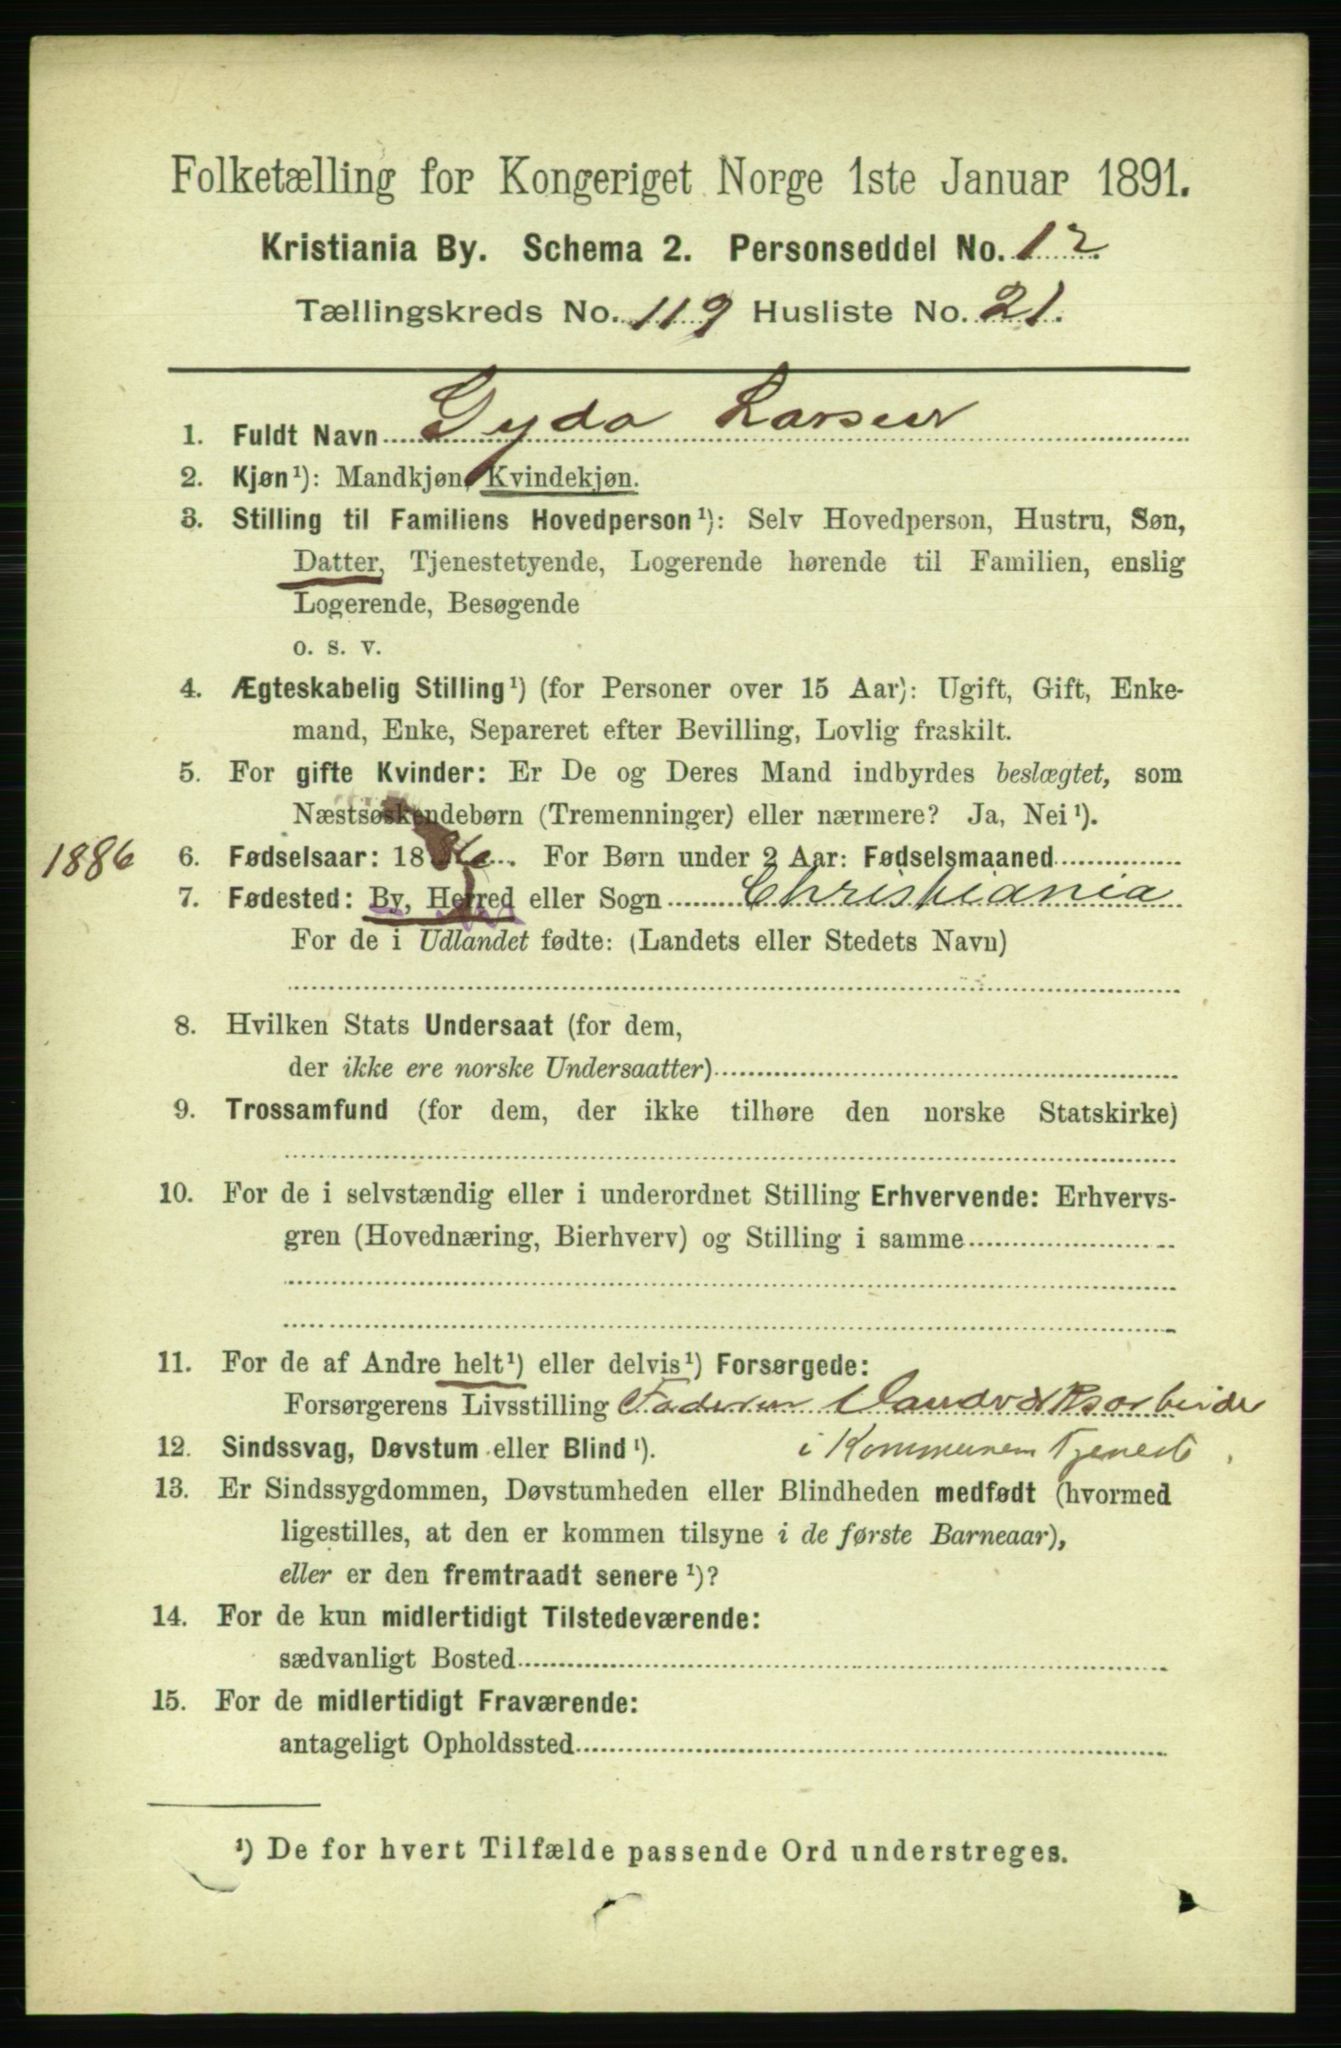 Folketælling for Kongeriget Norge 1ste Januar 1891.
Kristiania By. Schema 2. Personseddel No. 12
Tællingskreds No. 119 Husliste No. 21.
1. Fuldt Navn Gyda Larsen
2. Kjøn¹): Mandkjøn, Kvindekjøn.
3. Stilling til Familiens Hovedperson¹): Selv Hovedperson, Hustru, Søn,
Datter, Tjenestetyende, Logerende hørende til Familien, enslig
Logerende, Besøgende
o. s. v.
4. Ægteskabelig Stilling¹) (for Personer over 15 Aar): Ugift, Gift, Enke-
mand, Enke, Separeret efter Bevilling, Lovlig fraskilt.
5. For gifte Kvinder: Er De og Deres Mand indbyrdes beslægtet, som
Næstsøskendebørn (Tremenninger) eller nærmere? Ja, Nei¹).
1886 6. Fødselsaar: 1886. For Børn under 2 Aar: Fødselsmaaned
7. Fødested: By, Herred eller Sogn Christiania
For de i Udlandet fødte: (Landets eller Stedets Navn)
8. Hvilken Stats Undersaat (for dem,
der ikke ere norske Undersaatter)
9. Trossamfund (for dem, der ikke tilhøre den norske Statskirke)
10. For de i selvstændig eller i underordnet Stilling Erhvervende: Erhvervs-
gren (Hovednæring, Bierhverv) og Stilling i samme
11. For de af Andre helt¹) eller delvis¹) Forsørgede:
Forsørgerens Livsstilling Faderen Vandværksarbeider
12. Sindssvag, Døvstum eller Blind¹). i Kommunens Tjeneste
13. Er Sindssygdommen, Døvstumheden eller Blindheden medfødt (hvormed
ligestilles, at den er kommen tilsyne i de første Barneaar),
eller er den fremtraadt senere¹)?
14. For de kun midlertidigt Tilstedeværende:
sædvanligt Bosted
15. For de midlertidigt Fraværende:
antageligt Opholdssted
¹) De for hvert Tilfælde passende Ord understreges.